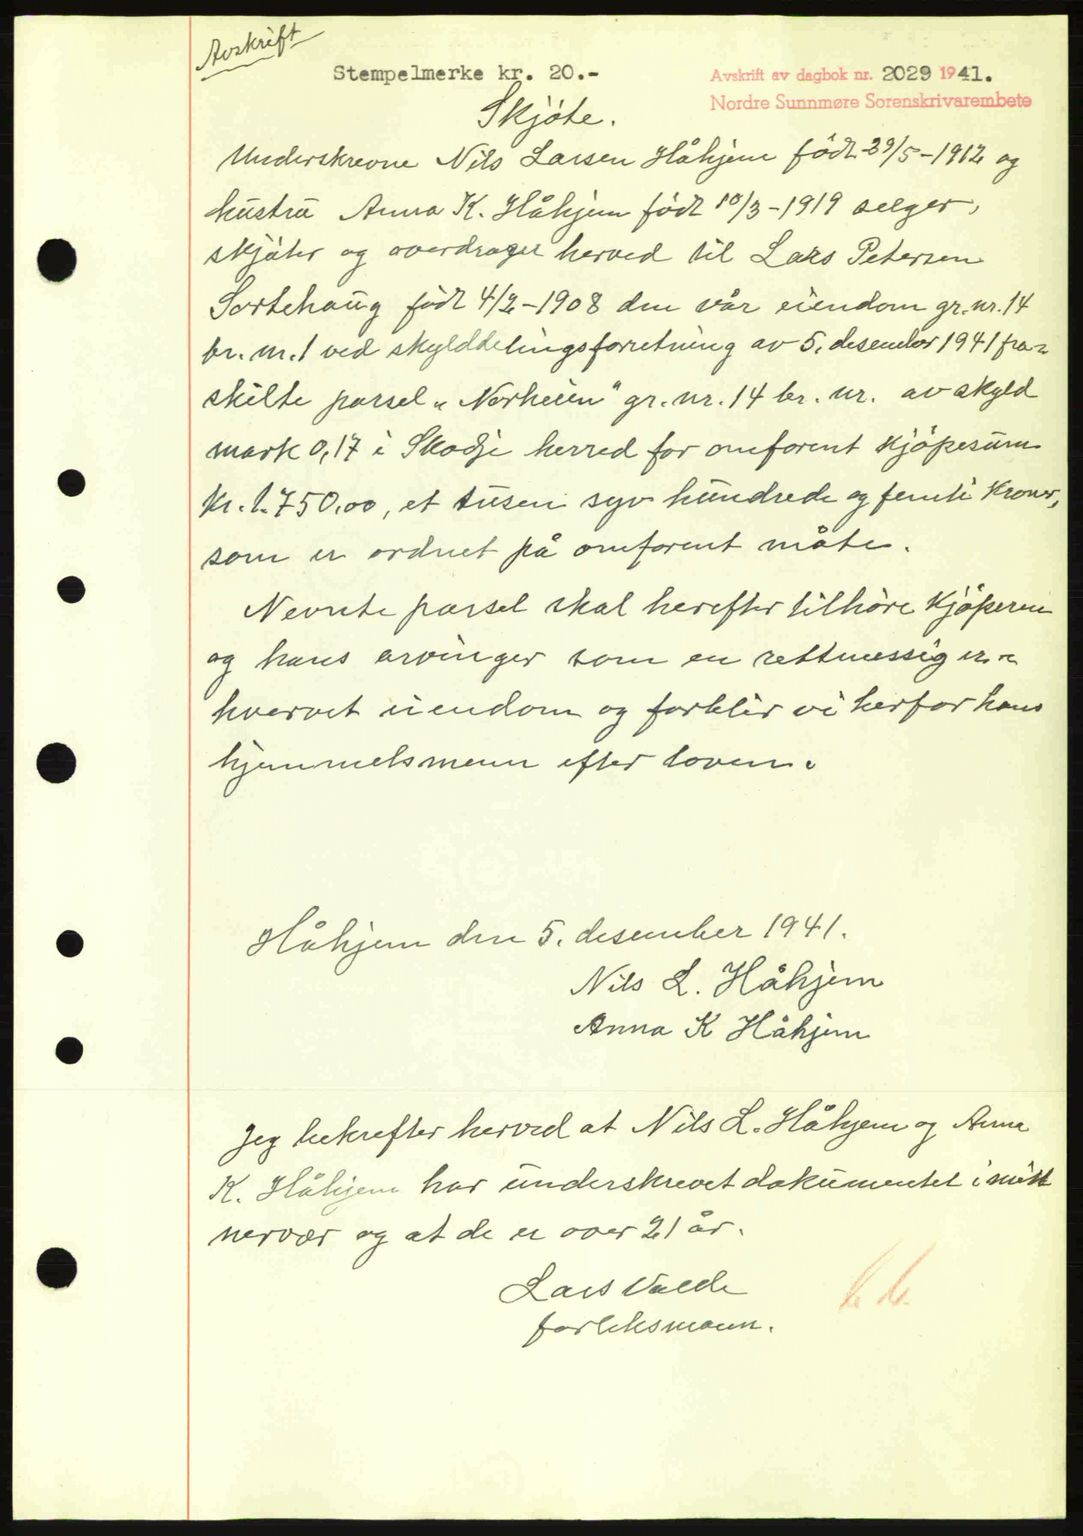 Avskrift
Stempelmerke kr. 20.-
Avskrift av dagbok nr. 2029 1941.
Nordre Sunnmøre Sorenskrivarembete
Skjöte.
Underskrevne Nils Larsen Håhjem född 29/5-1912 og
hustru Anna K. Håhjem född 10/3-1919 selger,
skjöter og overdrager herved til Lars Petersen
Sortehaug född 4/2-1908 den vår eiendom gr.nr. 14
br.nr. 1 ved skylddelingsforretning av 5. desember 1941 fra-
skilte parsel „Norheien" gr.nr. 14 br.nr. av skyld
mark 0,17 i Skodje herred for omforent kjöpesum
kr. 1.750,00, et tusen syv hundrede og femti kroner,
som er ordnet på omforent måte.
Nevnte parsel skal herefter tilhöre kjöperen
og hans arvinger som en rettmessig er-
hvervet eiendom og forblir vi herfor hans
hjemmelsmenn efter loven.
Håhjem den 5. desember 1941.
Nils L. Håhjem
Anna K Håhjem
Jeg bekrefter herved at Nils L. Håhjem og Anna
K. Håhjem har underskrevet dokumentet i mitt
nervær og at de er over 21 år.
Lars Valde
forliksmann.